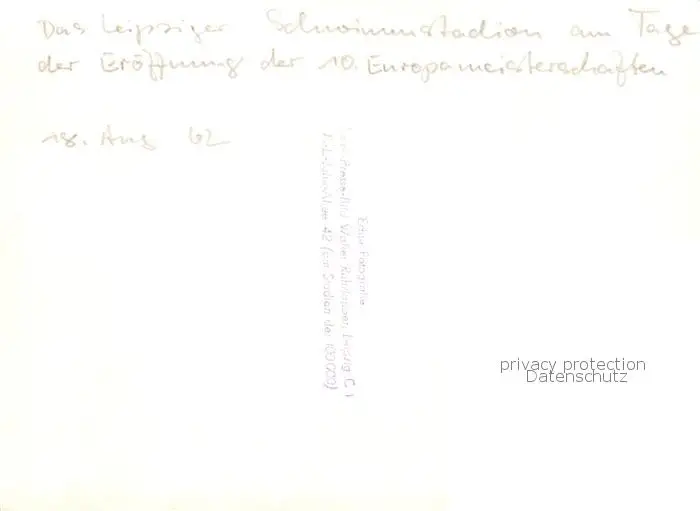 Das Leipziger Schwimmstadion am Tage
der Eröffnung der 10. Europameisterschaften
18. Aug 62
Echte Fotografie
Walter Leipzig C 1
42 (am Stadion der 100 000)
privacy protection
Datenschutz